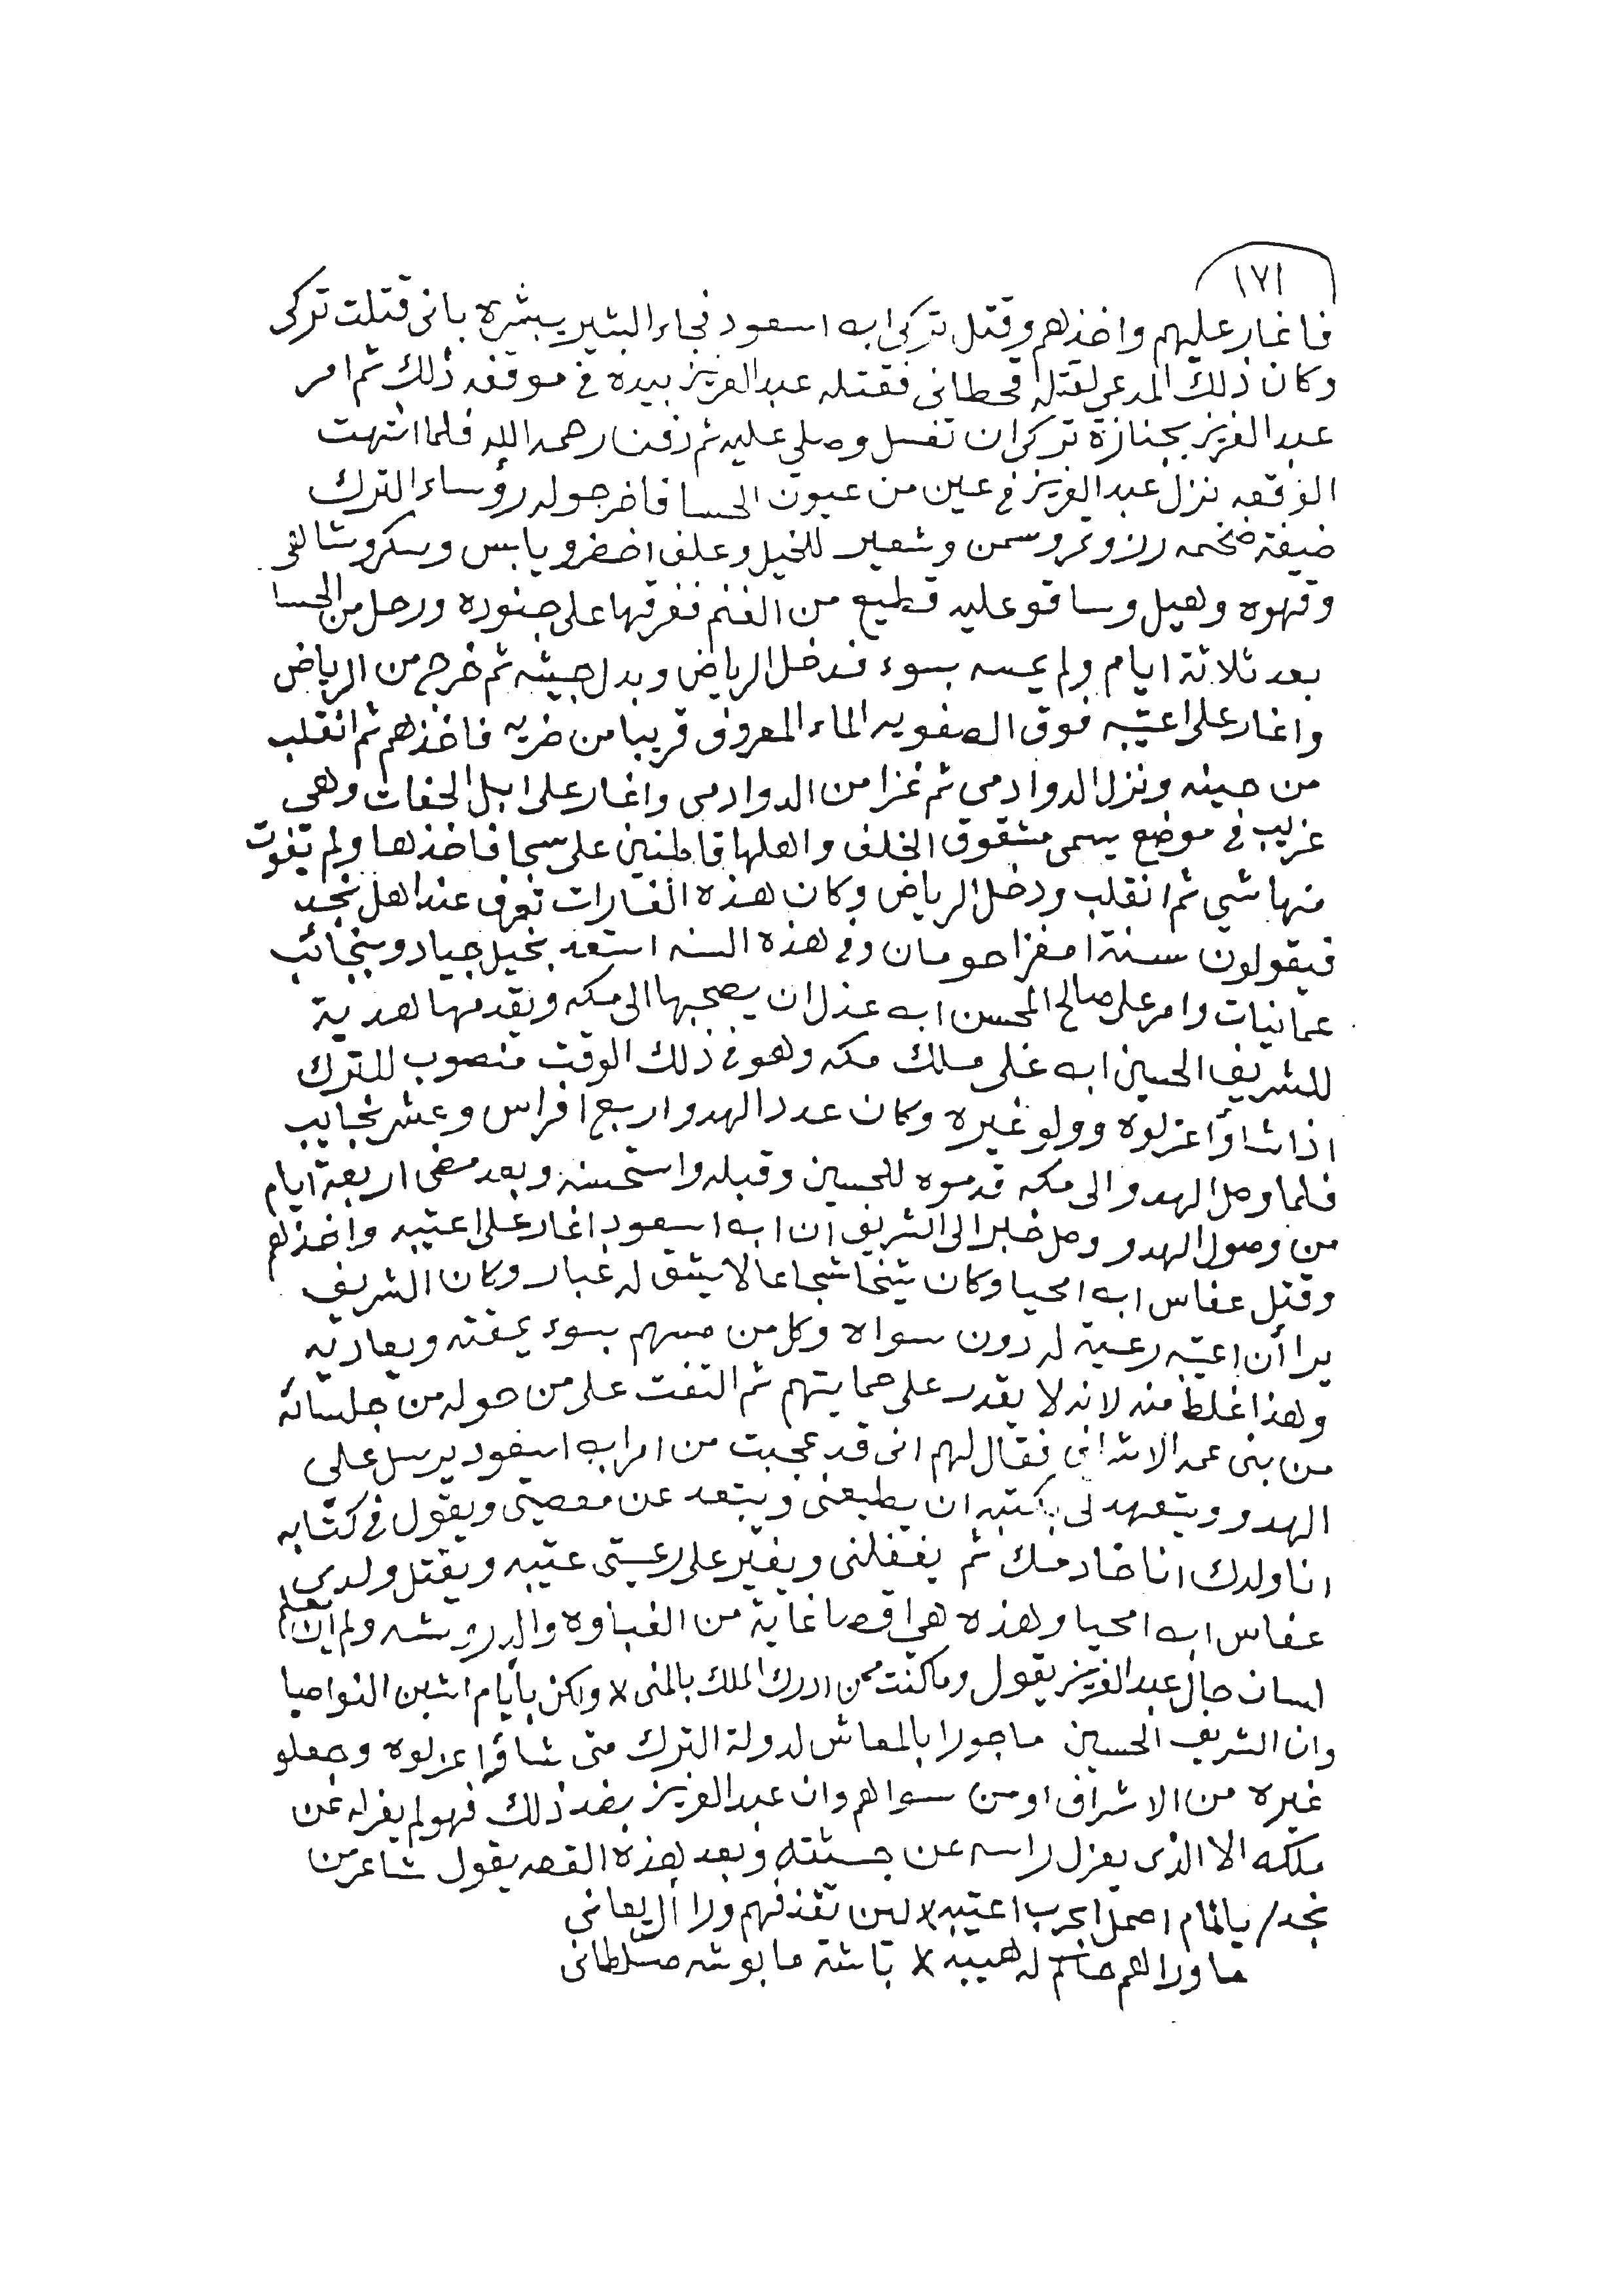 ١٧١
فاغار عليهم واخذهم وقتل تركي ابه اسعود فجاء البشير يبشره باني قتلت تركي
وكان ذلك المدعي لقتله قحطاني فقتله عبدالعزيز بيده في موقفه ذلك ثم امر
عبدالعزيز بجنازة تركي ان تغسل وصلي عليه ثم دفن رحمه الله فلما انتهت
الوقعه نزل عبدالعزيز في عين من عيون الحسا فاخرجوله رؤساء الترك
ضيفة ضخمه رز وتمر وسمن وشعير للخيل وعلف اخضر ويابس وسكر وشالقي
وقهوه وهيل وساقو عليه قطيع من الغنم ففرقها على جنوده ورحل من الحسا
بعد ثلاثة ايام ولم يمسه بسوء فدخل الرياض وبدل جيشه ثم خرج من الرياض
واغار على اعتيبه فوق الصفويه الماء المعروف قريبا من ضريه فاخذهم ثم انقلب
من حينه ونزل الدوادمي ثم غزا من الدوادمي واغار على ابل الحفات وهي
عزيب في موضع يسمى مشقوق الخلف واهلها قاطنين على سجا فاخذها ولم تفوت
منها شي ثم انقلب ودخل الرياض وكان هذه الغارات تعرف عند اهل نجد
فيقولون سنة امغزا حومان وفي هذه السنه استعد بخيل جياد وبنجائب
عمانيات وامر على صالح المحسن ابه عذل ان يصحبها الى مكه ويقدمها هدية
للشريف الحسين ابه علي مسلك مكه وهو في ذلك الوقت منصوب للترك
اذا شاؤا عزلوه وولو غيره وكان عدد الهدو اربع افراس وعشر نجايب
فلما وصل الهدو الى مكه قدموه للحسين وقبله واستحسنه وبعد مضي اربعة ايام
من وصول الهدو وصل خابر الى الشريف ان ابه اسعود اغار على اعتيبه واخذهم
وقتل عفاس ابه امحيا وكان شيخا شجاعا لا يشق له غبار وكان الشريف
يرا أن اعتيبه رعية له دون سواه وكل من مسهم بسوء يمقته ويعاديه
وهذا غلط منه لانه لا يقدر على حمايتهم ثم التفت على من حوله من جلسائه
من بني عمه الاشراف فقال لهم اني قد عجبت من امر ابه اسعود يرسل علي
الهدو ويتعهد لي بكتبه ان يطيعني ويبتعد عن معصيتي ويقول في كتابه
انا ولدك انا خادمك ثم يغفلني ويغير على رعيتي عتيبه ويقتل ولدي
عفاس ابه امحيا وهذه هي اقصا غاية من الغباوه والدروشه ولم يعلم ان
لسان حال عبدالعزيز يقول وما كنت ممن ادرك الملك بالمنى × ولكن بأيام اشبن النواصيا
وان الشريف الحسين ماجورا بالمعاش لدولة الترك متى شاؤا عزلوه وجعلو
غيره من الاشراف او من سواهم وان عبدالعزيز بضد ذلك فهو لم يعزله عن
ملكه الا الذي يعزل راسه عن جسثته وبعد هذه القصه يقول شاعر من
نجد/ يالامام احمل الحرب اعتيبه × لين تقذفهم ورا اليعاني
ما وراهم حاكم له هيبه × باشة مابوشه سلطاني